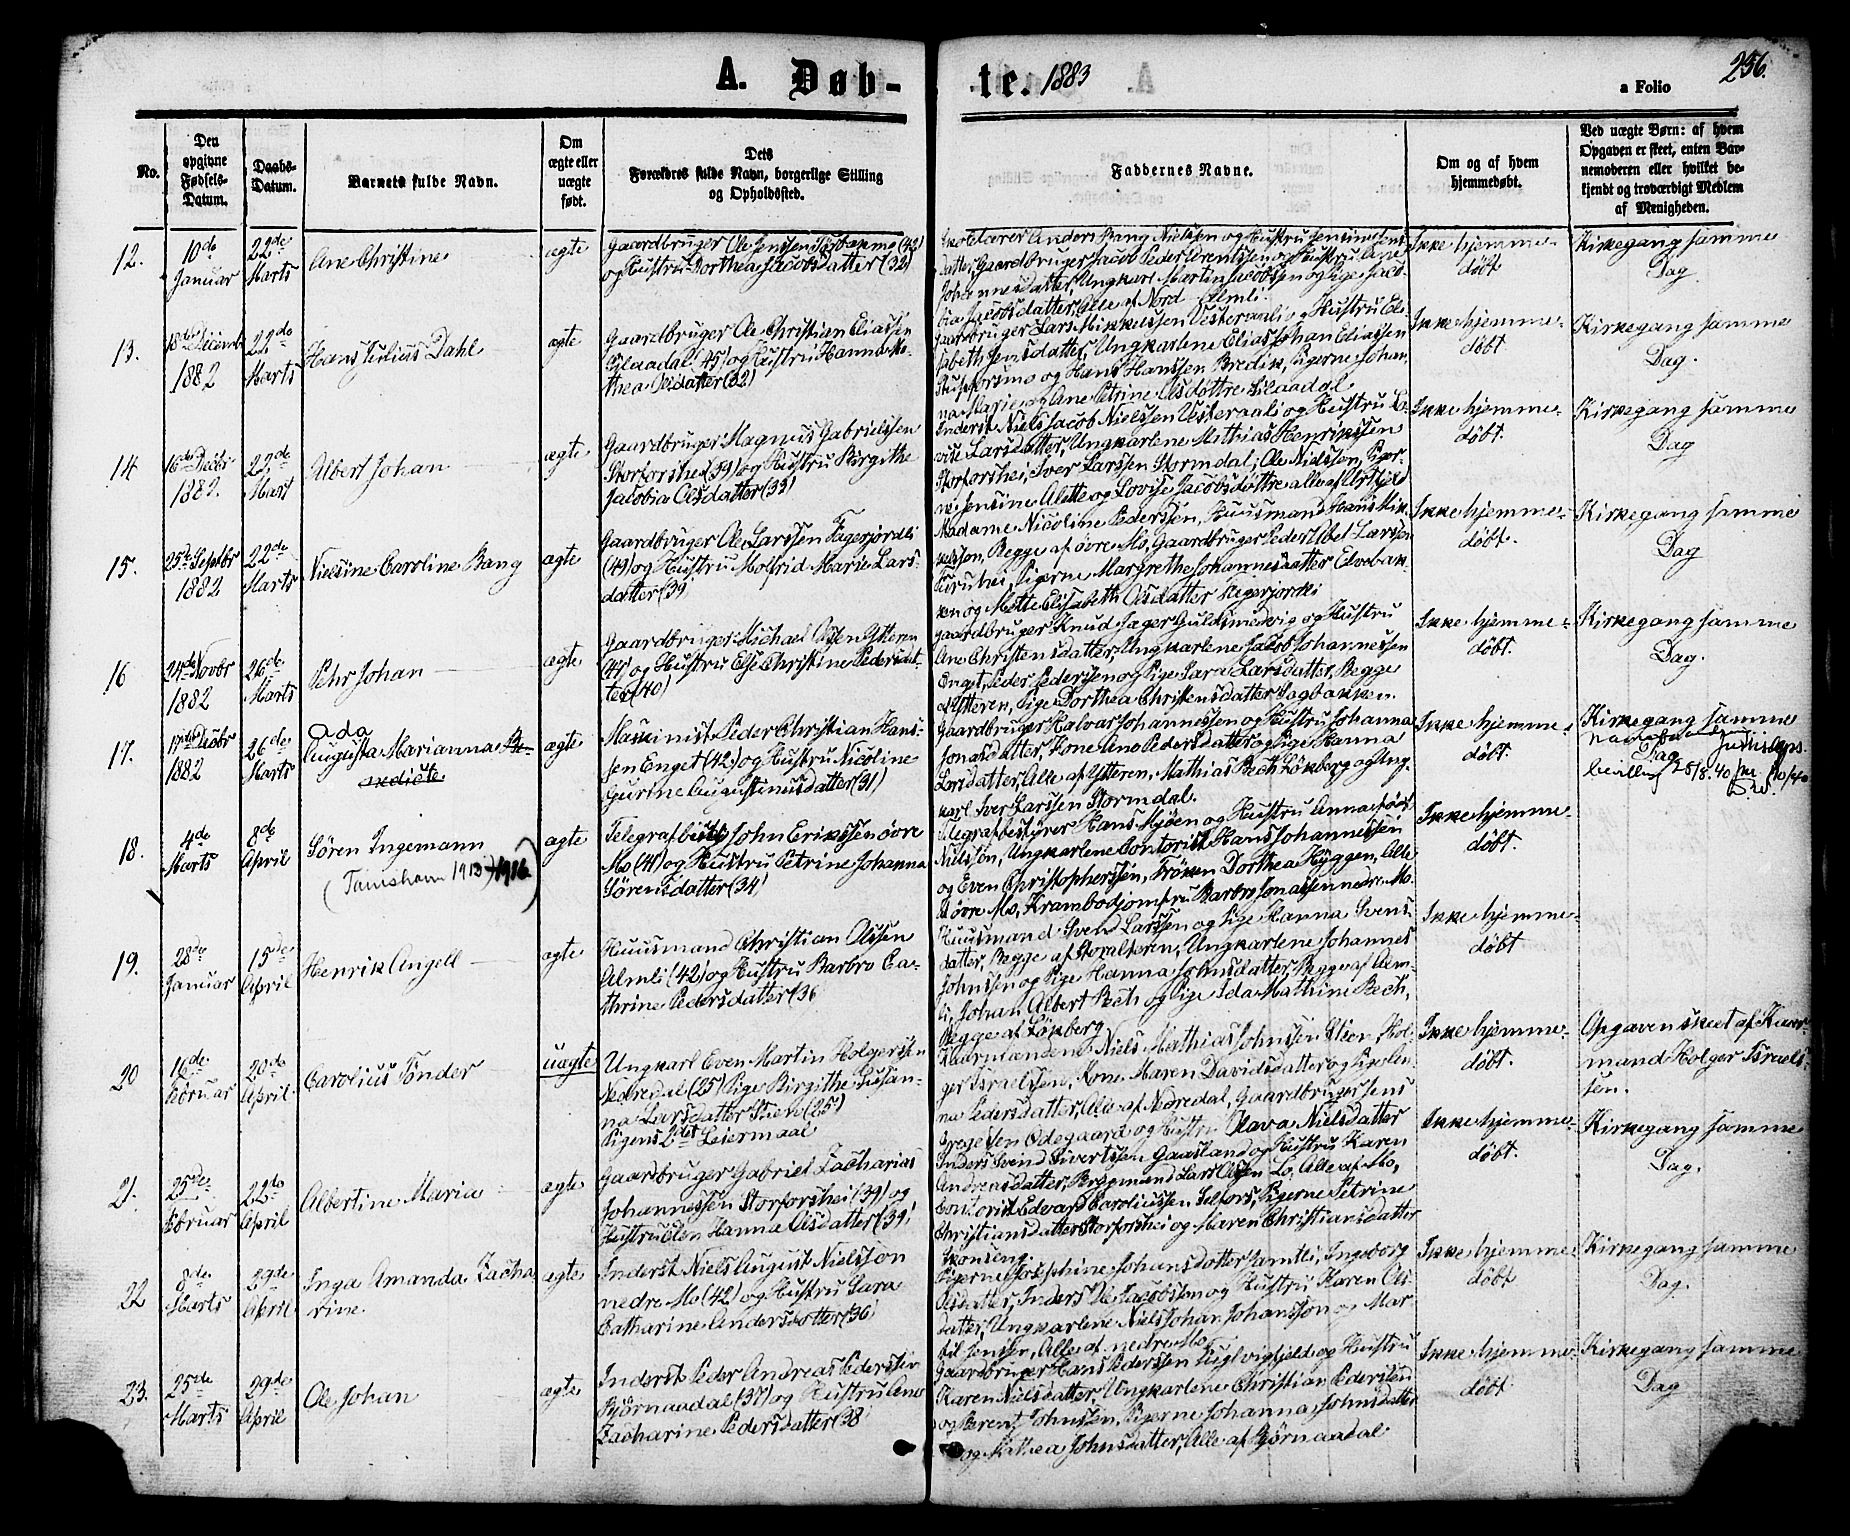 A. Døb-
te. 1883
256.
a Folio
No.
Den
opgivne
Fødsels-
Datum.
Daabs-
Datum.
Barnets fulde Navn.
Om
ægte eller
uægte
født.
Dets
Forældres fulde Navn, borgerlige Stilling
og Opholdssted.
Faddernes Navne.
Om og af hvem
hjemmedøbt.
Ved uægte Børn: af hvem
Opgaven er skeet, enten Bar-
nemoderen eller hvilket be-
kjendt og troværdigt Medlem
af Menigheden.
12.
10de
Januar
22de
Marts
Ane Christine
ægte
Gaardbruger Ole Jenssen (42)
og Hustru Dorthea Jacobsdatter (32)
Skolelærer Anders Bang Nielssen og Hustru
datter, Gaardbruger Jacob Peder Arentssen og Hustru Ane
Johannesdatter, Ungkarl Martin Jacobssen og Pige Jaco-
bia Jacobsdatter, Alle af Nord Almli.
Ikke hjemme-
døbt
Kirkegang samme
Dag
13.
18de Decemb
1882
22de
Marts
Hans Julius Dahl
ægte
Gaardbruger Ole Christian Eliassen
(45) og Hustru Hanna
thea Olsdatter (32)
Gaardbruger Lars Mikkelssen Vesteraali og Hustru Eli-
sabeth Jensdatter, Ungkarlene Elias Johan Eliassen
og Hans Hanssen Bredik, Pigerne Johan-
na Marie og Ane Petrine Olsdøttre
Ikke hjemme-
døbt
Kirkegang samme
Dag.
14
16de Decbr
1882.
22de
Mart
Albert Johan
ægte
Gaardbruger Magnus Gabrielssen
Storforshei (39) og Hustru Birgithe
Jacobia Olsdatter (32)
Inderst Niels Jacob Nielssen Vesteraali og Hustru Lo-
vise Larsdatter, Ungkarlene Mathias Henrikssen
Storforshei, Iver Larssen Stormdal, Ole Nielssen, Piger-
ne Jensine Alette og Lovise Jacobsdøttre alle af
Ikke hjemme-
døbt.
Kirkegang samme
Dag
15.
25de Septbr
1882
22de
Marts
Nielsine Caroline Bang
ægte
Gaardbruger Ole Larssen Fagerjordli
(49) og Hustru Molfrid Marie Lars-
datter (39)
Madame Nicoline Pederssen, Huusmand Hans Mik-
kelssen, Begge af øvre Mo, Gaardbruger Peder Abel Larssen
, Pigerne Margrethe Johannesdatter
og Mette Elisabeth Olsdatter Fagerjordli
Ikke hjemme-
døbt.
Kirkegang samme
Dag
16
24de Novbr
1882
26de
Marts
Pehr Johan
ægte
Gaardbruger Michael Olssen Ytteren
(44) og Hustru Else Christine Pedersdat-
ter (40)
Gaardbruger Knud Jæger Guldsmedvig og Hustru
Ane Christensdatter, Ungkarlene Jacob Johannessen
Enget, Peder Pederssen og Pige Sara Larsdatter, Begge
af Ytteren, Pige Dorthea Christensdatter Sagbakken.
Ikke hjemme-
døbt.
Kirkegang samme
Dag.
17.
17de Decbr
1882
26de
Marts
Ada
Augusta Marianna Be-
nedicte
ægte
Maskinist Peder Christian Hans-
sen Enget (42) og Hustru Nicoline
Gurine Augustinusdatter (31)
Gaardbruger Halvar Johannessen og Hustru Johanna
Jonasdatter, Kone Ane Pedersdatter og Pige Hanna
Larsdatter, Alle af Ytteren, Mathias Bech Løkberg og Ung-
karl Iver Larssen Stormdal.
Ikke hjemme-
døbt.
Kirkegang samme
Dag
bevilling 28/8.40
18.
4de
Marts
8de
April
Sören Ingemann
(Tamsham 1913) 1916)
ægte
Telegrafbest. John Erikssen øvre
Mo (41) og Hustru Petrine Johanna
Sörensdatter (34)
Telegrafbestyrer Hans Mjøen og Hustru Anna
Nielson, Ungkarlene Contorist Hans Johannessen
og Even Christopherssen, Frøken Dorthea Hyggen, Alle
af øvre Mo, Krambodjomfru Barbro Jonassen nedre Mo.
Ikke hjemme-
døbt.
19.
28de
Januar
15de
April
Henrik Angell
ægte
Huusmand Christian Olssen
Almli (42) og Hustru Barbro Ca-
thrine Pedersdatter (36
Huusmand Svend Larssen og Pige Hanna Svens-
datter, Begge af Storalteren, Ungkarlene Johannes
Johnsen og Pige Hanna Johnsdatter, Begge af Alm-
li, Johan Albert Bech og Pige Ida Mathine Bech,
Begge af Løkberg
Ikke hjemme-
døbt
20
16de
Februar
20de
April
Carolius Tönder
uægte
Ungkarl Even Martin Holgerssen
Nedredal (25) Pige Birgithe Susan-
na Larsdatter Stien (25)
Pigens 2det Leiermaal
Kaarmændene Niels Mathias Johnssen Stien, Hol-
ger Israelssen, Kone Maren Davidsdatter og Pige An-
na Pedersdatter, Alle af Nedredal, Gaardbruger Jens
Gregersen Ødegaard og Hustru Olava Nielsdatter
Ikke hjemme-
døbt.
Opgaven skeet af Kaar-
mand Holger Israels-
sen.
21.
25de
Februar
22de
April
Albertine Maria
ægte
Gaardbruger Gabriel Zacharias
Johannessen Storforshei (39) og
Hustru Ellen Hanna Olsdatter (39)
Inders Svend Sivertssen Gaasland og Hustru Karen
Andreasdatter, Bygmand Lars Olssen Lo, Alle af Mo,
Contorist Edevard Caroliussen Selfors, Pigerne Petrine
Christiansdatter Storforshei og Maren Christiansdatter
Skonseng.
Ikke hjemme-
døbt.
Kirkegang samme
Dag.
22
8de
Marts
29de
April
Inga Amanda Zacha
rine
ægte
Inderst Niels August Nielsson
nedre Mo (42) og Hustru Sara
Catharine Andersdatter (36)
Pigerne Josephine Johansdatter Jamtli, Ingeborg
Olsdatter, Inders Ole Jacobsson og Hustru Karen Ols-
datter, Ungkarlene Niels Johan Johansson og Mar-
til Jensen, Alle af nedre Mo
Ikke hjemme-
døbt
Kirkegang samme
Dag.
23.
25de
Marts
29de
April
Ole Johan
ægte
Inderst Peder Andreas Pederssen
Bjørnaadal (37) og Hustru Ane
Zacharine Pedersdatter (38)
Gaardbruger Hans Pederssen Fuglvigfjeld og Hustru
Karen Nielsdatter, Ungkarlene Christian Pederssen
og Berent Johnsen, Pigerne Johanna Johnsdatter
og Mathea Johnsdatter, Alle af Bjørnaadal
Ikke hjemme-
døbt.
Kirkegang samme
Dag